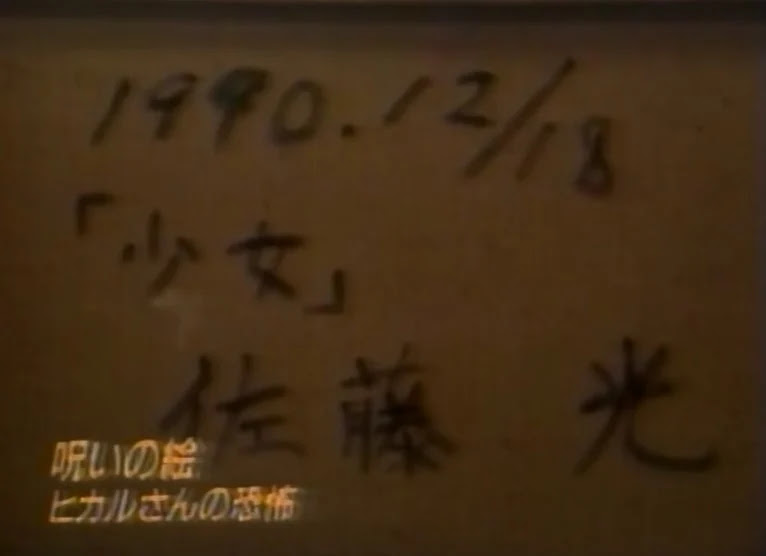 1990.12/18
「少女」
佐藤 光
呪いの絵
ヒカルさんの恐怖